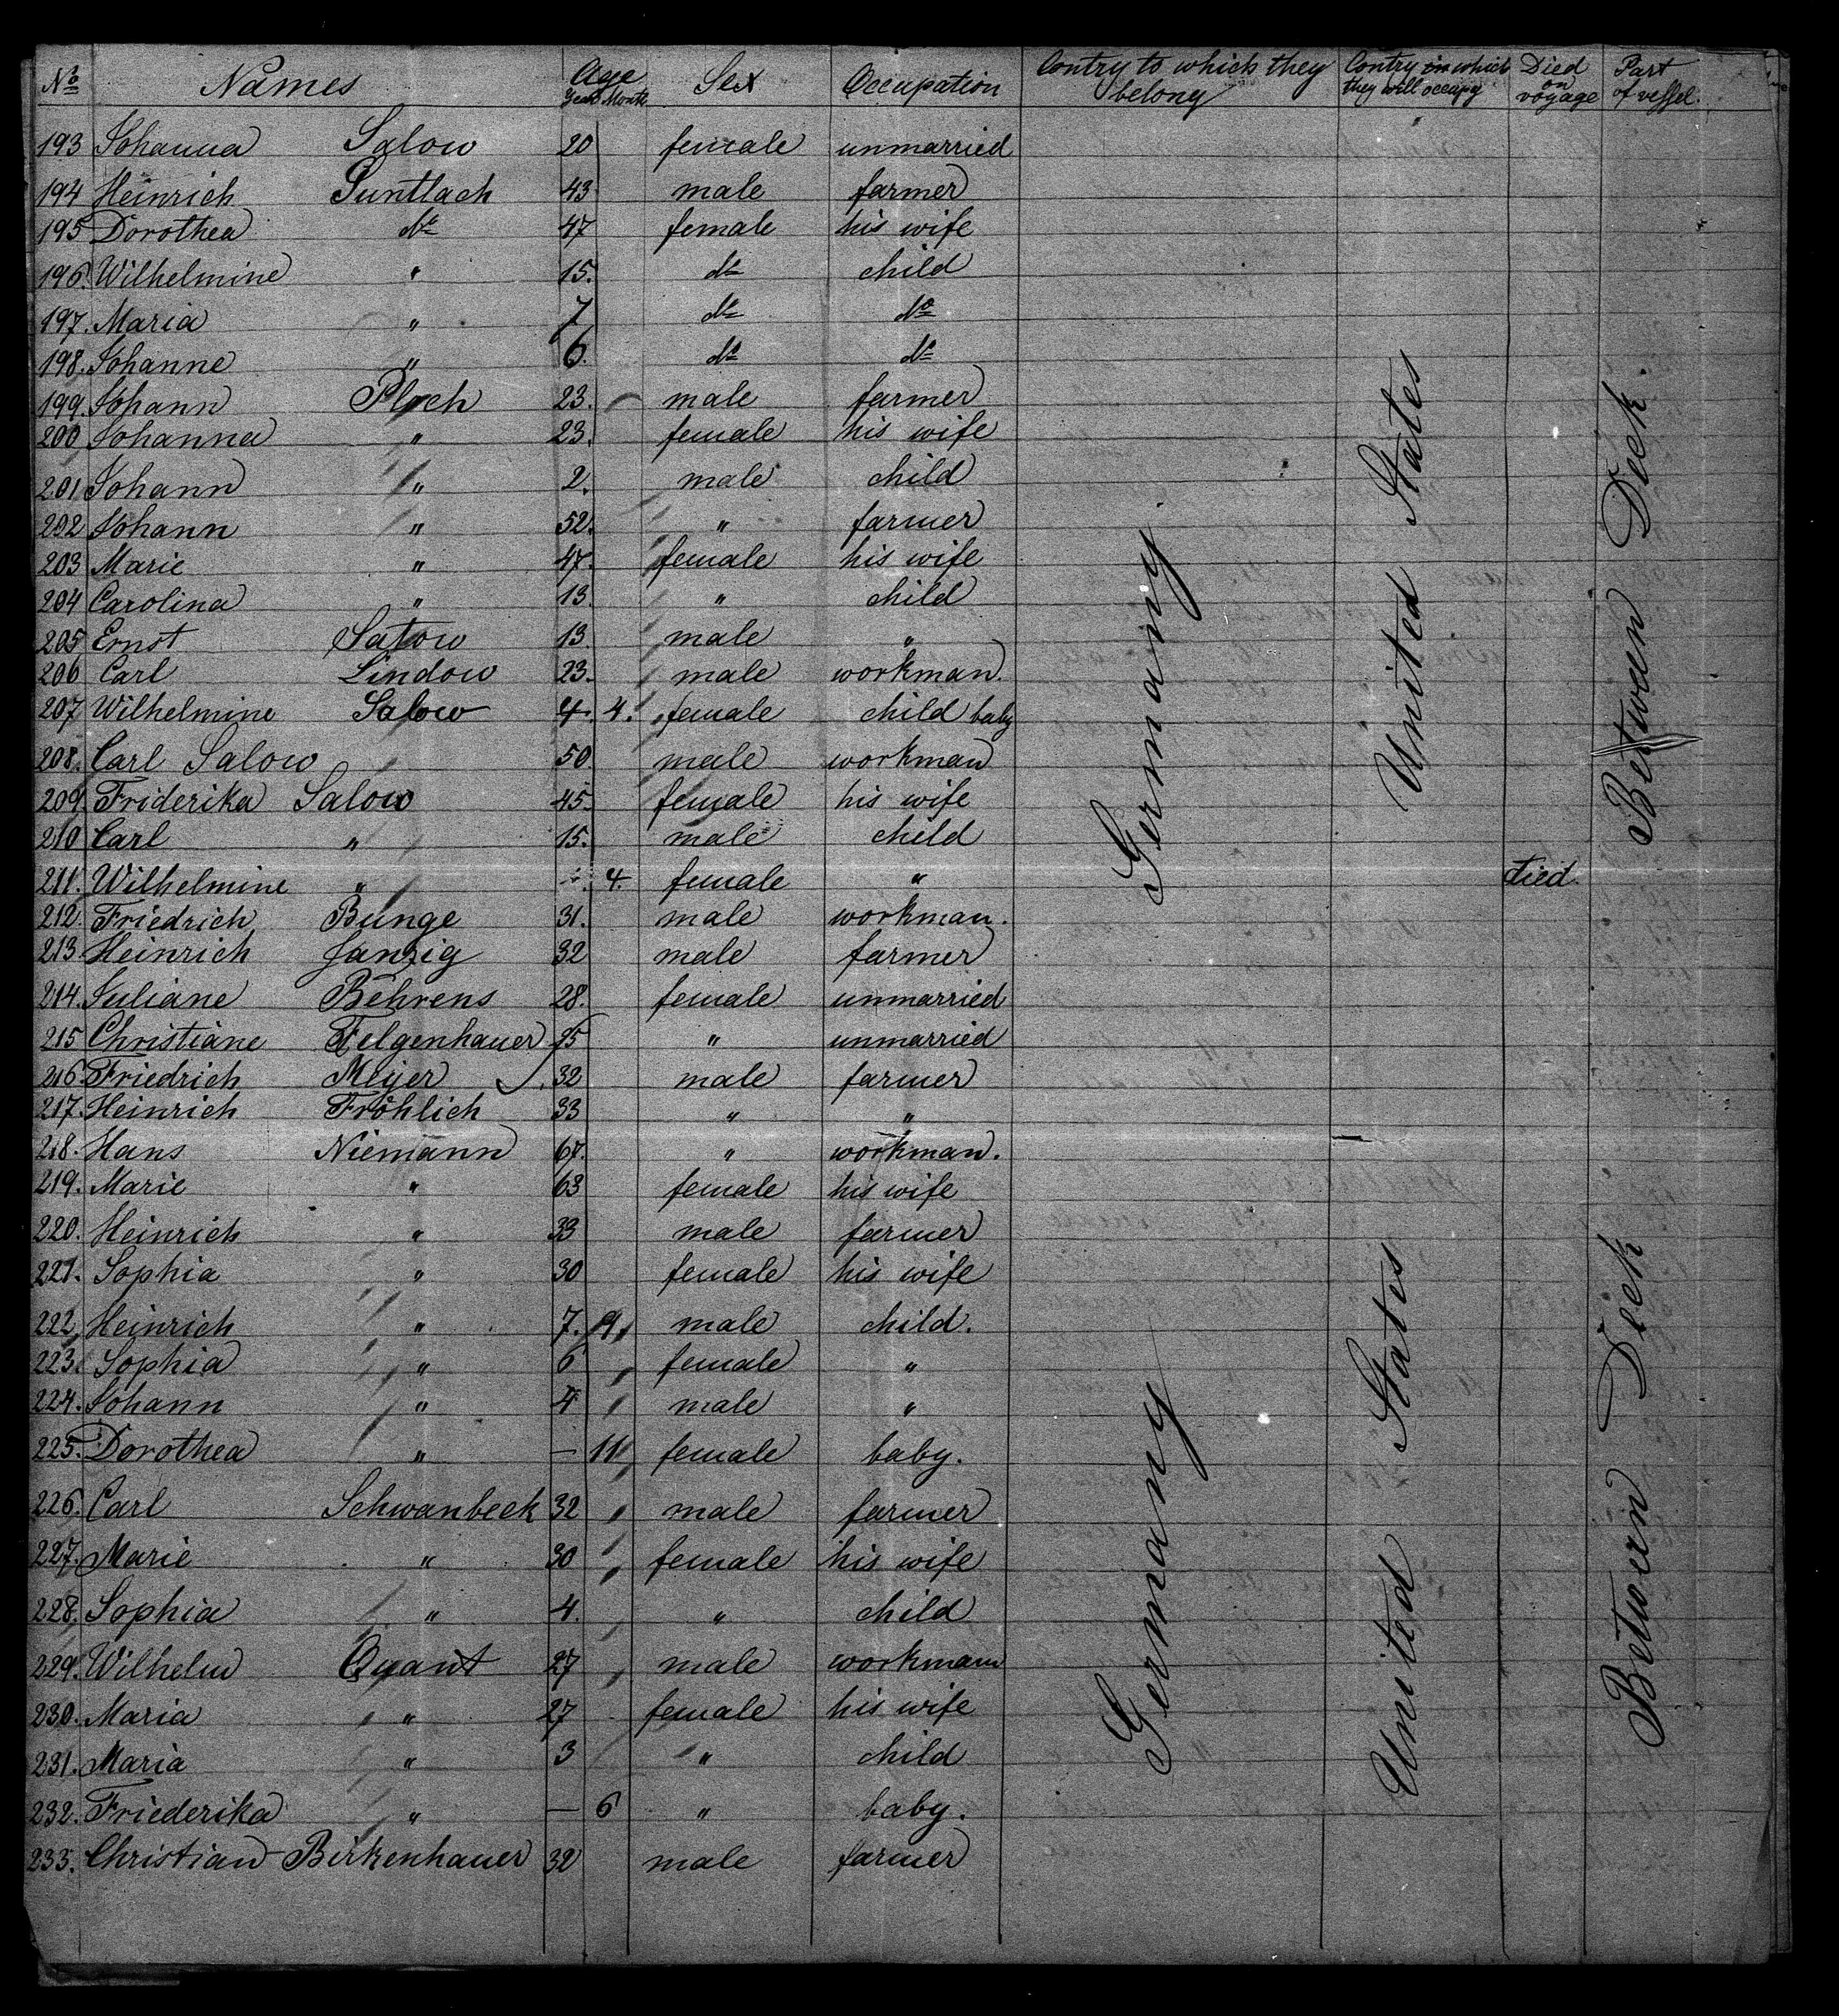 No Names Age Sex Occupation Contry to which they belong Contry in which they will occupy Died on voyage Part of vessel.
Years Month
193 Johanna Salow 20 female unmarried
194 Heinrich Suntlach 43 male farmer
195 Dorothea do 47 female his wife
196. Wilhelmine " 15. do child
197. Maria " 7 do do
198. Johanne " 6. do do
199. Johann Ploch 23. male farmer
200 Johanna " 23. female his wife
201 Johann " 2. male child
202 Johann " 52. " farmer
203 Marie " 47. female his wife
204 Carolina " 13. " child
205 Ernst Satow 13. male "
206 Carl Lindow 23. male workman.
207 Wilhelmine Salow 4. 4. female child baby
208. Carl Salow 50 male workman
209. Friderika Salow 45. female his wife
210 Carl " 15. male child
211. Wilhelmine " ÷. 4. female " died.
212. Friedrich Bunge 31. male workman.
213. Heinrich Janzig 32 male farmer
214. Juliane Behrens 28. female unmarried
215 Christiane Felgenhauer 25 " unmarried
216. Friedrich Meyer 32 male farmer
217. Heinrich Fröhlich 33 " "
218. Hans Niemann 67. " workman.
219. Marie " 63 female his wife
220. Heinrich " 33 male farmer
221. Sophia " 30 female his wife
222. Heinrich " 7. 9 male child.
223. Sophia " 6 female "
224. Johann " 4 male "
225. Dorothea " — 11 female baby.
226. Carl Schwanbeck 32 male farmer
227. Marie " 30 female his wife
228. Sophia " 4. " child
229. Wilhelm Quant 27 male workmann
230. Maria " 27 female his wife
231. Maria " 3 " child
232. Friederika " — 6 " baby.
233. Christian Birkenhauer 32 male farmer
Germany
United States
Betwean Deck.
Germany
United States
Betwein Deck